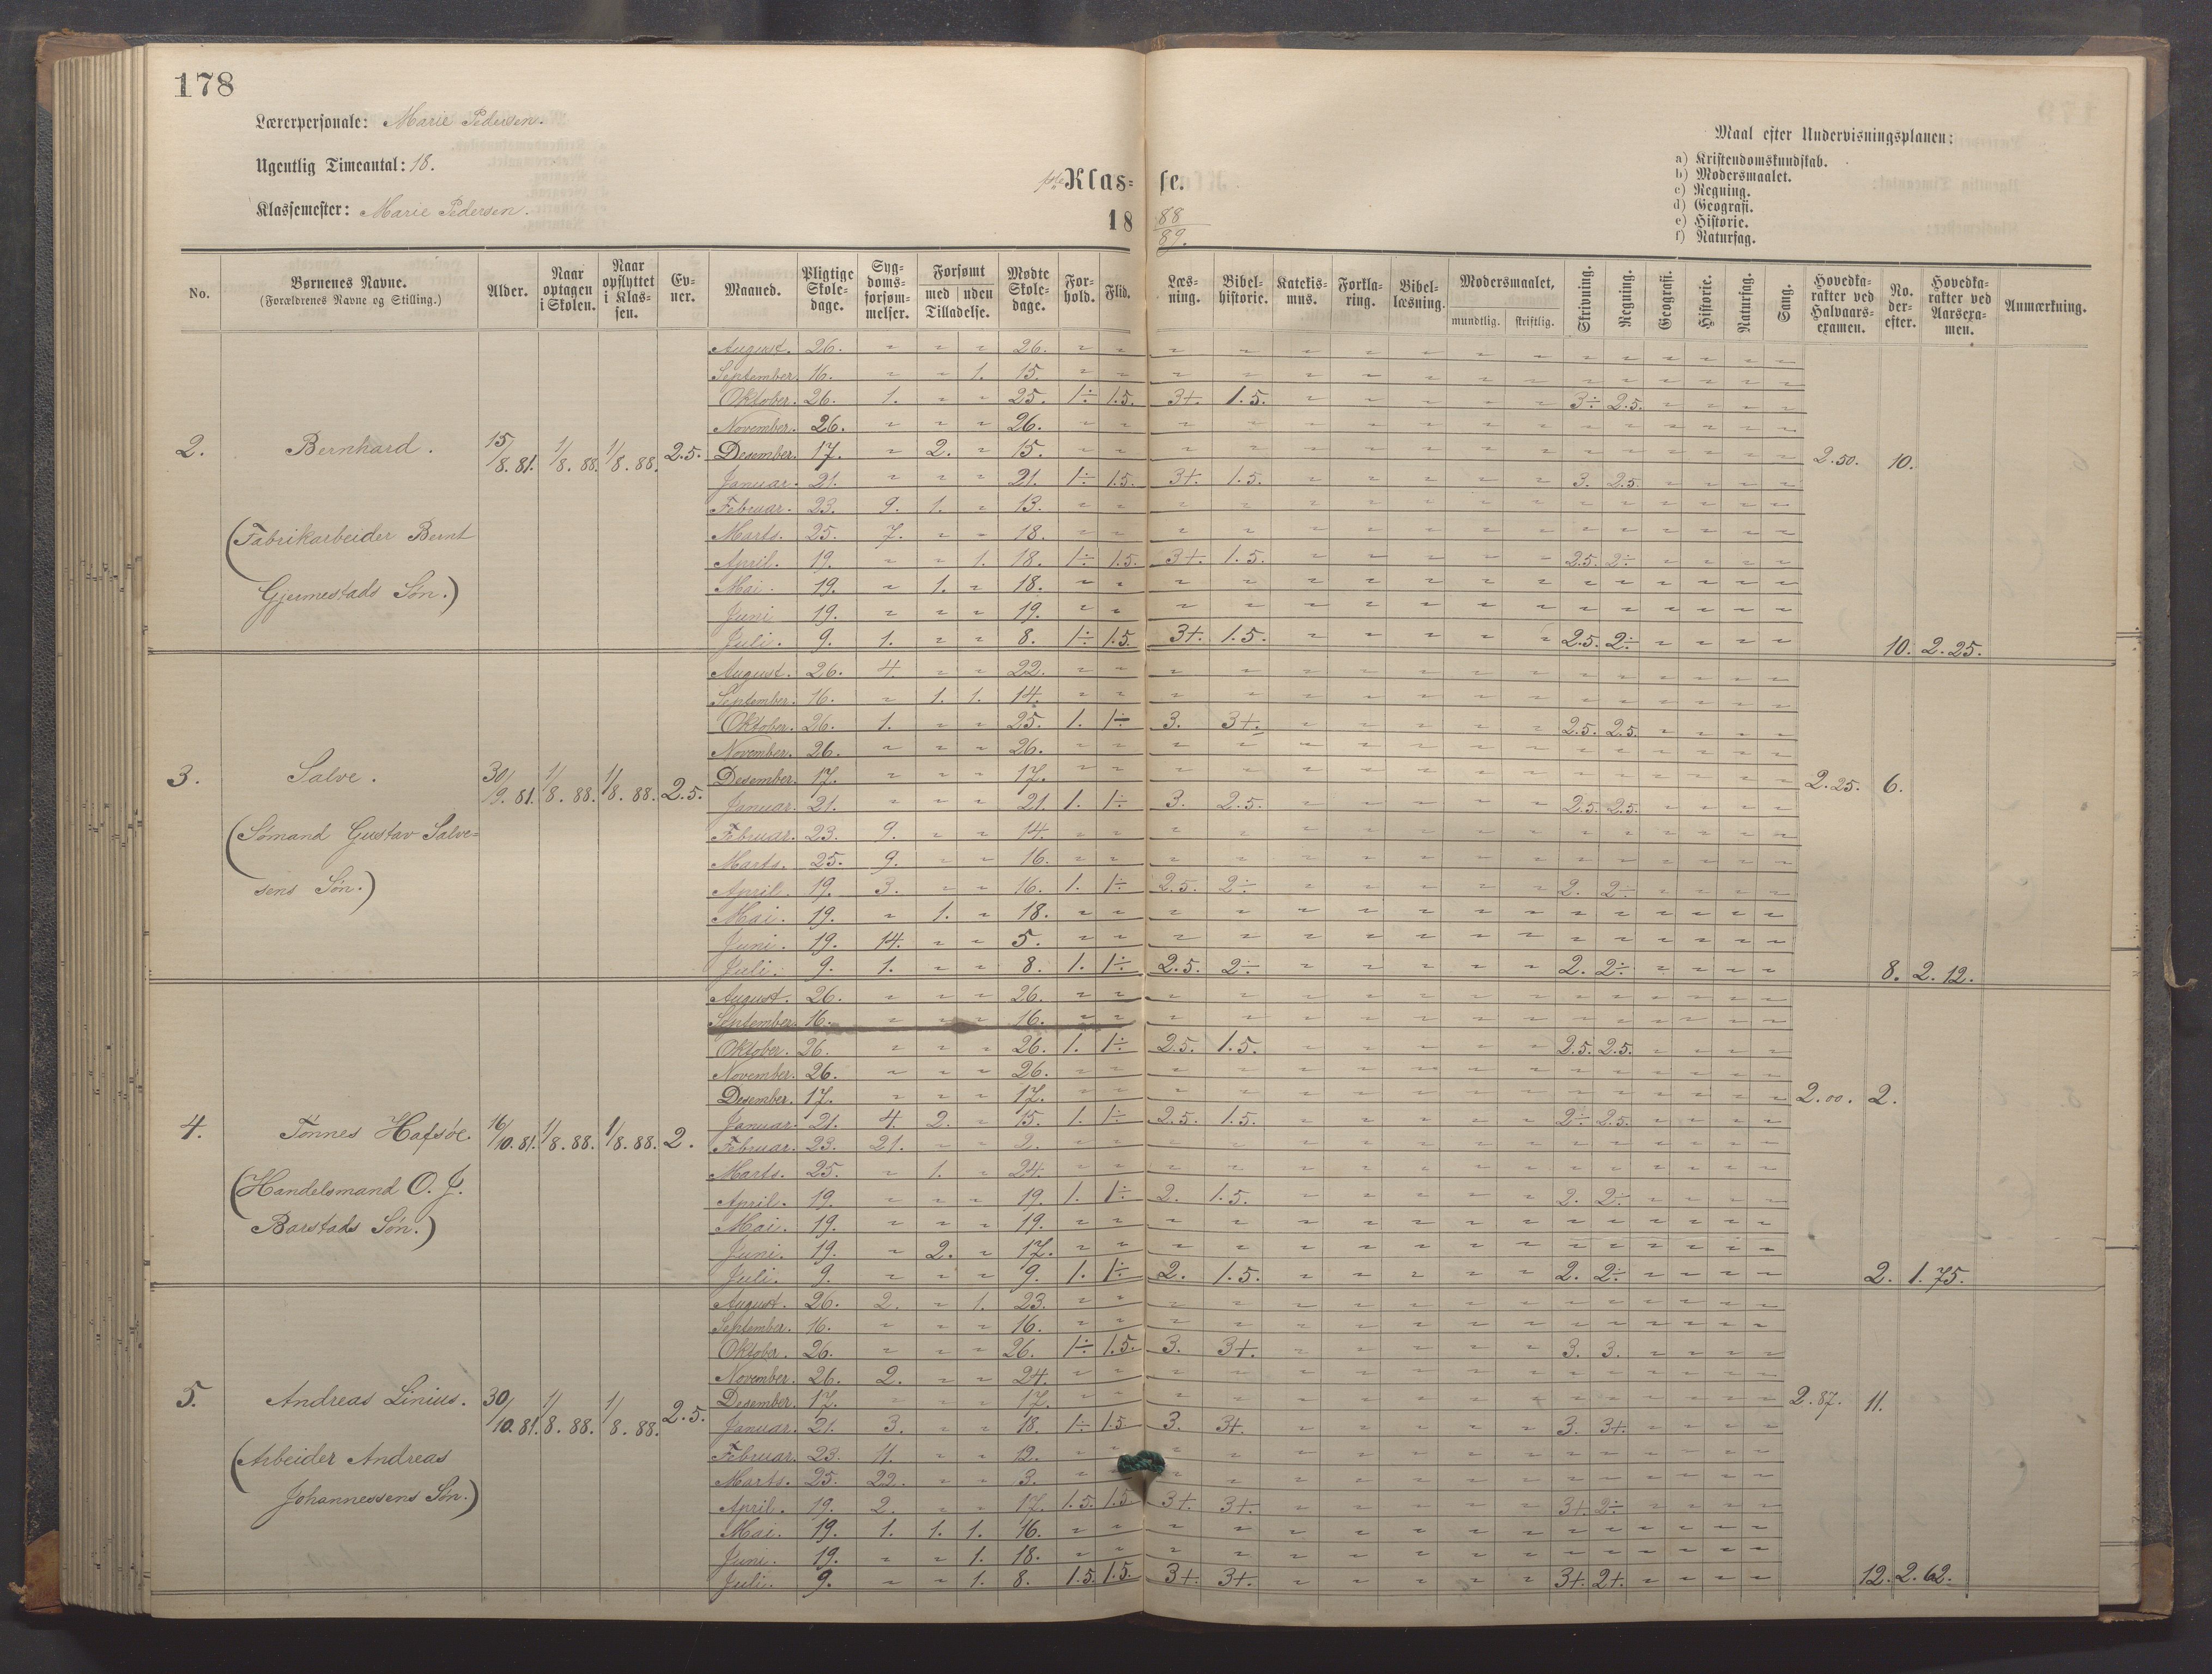 178
Lærerpersonale: Marie Pedersen.
Ugentlig Timeantal: 18.
Klassemester: Marie Pedersen.
1ste Klas= se.
18 88/89.
Maal efter Undervisningsplanen:
a) Kristendomskundskab.
b) Modersmaalet.
c) Regning.
d) Geografi.
e) Historie.
f) Naturfag.
No. Børnenes Navne. (Forældrenes Navne og Stilling.) Alder. Naar optagen i Skolen. Naar opflyttet i Klas-sen. Ev-ner. Maaned. Pligtige Skole-dage. Syg-doms-forsøm-melser. Forsømt med uden Tilladelse. Mødte Skole-dage. For-hold. Flid. Læs-ning. Bibel-historie. Katekis-mus. Forkla-ring. Bibel-læsning. Modersmaalet, mundtlig. skriftlig. Skrivning. Regning. Geografi. Historie. Naturfag. Sang. Hovedka-rakter ved Halvaars-examen. No. der-efter. Hovedka-rakter ved Aarsexa-men. Anmærkning.
2. Bernhard. 15/8. 81. 1/8. 88. 1/8. 88. 2.5.
(Fabrikarbeider Bernt
Gjermestads Søn.)
August. 26. " " " 26. " "
September. 16. " " 1. 15. " "
Oktober. 26. 1. " " 25. 1÷ 1.5. 3+. 1.5. " " " " " 3÷ 2.5. " " " "
November. 26. " " " 26. " "
Desember. 17. " 2. " 15. " " 2.50. 10.
Januar. 21. " " " 21. 1÷ 1.5. 3+. 1.5. " " " " " 3. 2.5. " " " "
Februar. 23. 9. 1. " 13. " "
Marts. 25. 7. " " 18. " "
April. 19. " " 1. 18. 1÷ 1.5. 3+. 1.5. " " " " " 2.5. 2÷ " " " "
Mai. 19. " 1. " 18. " "
Juni 19. " " " 19. " "
Juli. 9. 1. " " 8. 1÷ 1.5. 3+. 1.5. " " " " " 2.5. 2÷ " " " " 10. 2.25.
3. Salve. 30/9. 81. 1/8. 88. 1/8. 88. 2.5.
(Sømand Gustav Salve=
sens Søn.)
August. 26. 4. " " 22. " "
September. 16. " 1. 1. 14. " "
Oktober. 26. 1. " " 25. 1. 1÷ 3. 3+. " " " " " 2.5. 2.5. " " " "
November. 26. " " " 26. " "
Desember. 17. " " " 17. " " 2.25. 6.
Januar. 21. " " " 21. 1. 1÷ 3. 2.5. " " " " " 2.5. 2.5. " " " "
Februar. 23. 9. " " 14. " "
Marts. 25. 9. " " 16. " "
April. 19. 3. " " 16. 1. 1÷ 2.5. 2÷ " " " " " 2. 2÷ " " " "
Mai. 19. " 1. " 18. " "
Juni. 19. 14. " " 5. " "
Juli. 9. 1. " " 8. 1. 1÷ 2.5. 2÷ " " " " " 2. 2÷ " " " " 8. 2.12.
4. Tønnes Hafsøe. 16/10. 81. 1/8. 88. 1/8. 88. 2.
(Handelsmand O. J.
Barstads Søn.)
August. 26. " " " 26. " "
September. 16. " " " 16. " "
Oktober. 26. " " " 26. 1. 1÷ 2.5. 1.5. " " " " " 2.5. 2.5. " " " "
November. 26. " " " 26. " "
Desember. 17. " " " 17. " " 2.00. 2.
Januar. 21. 4. 2. " 15. 1. 1÷ 2.5. 1.5. " " " " " 2÷ 2.5. " " " "
Februar. 23. 21. " " 2. " "
Marts. 25. " 1. " 24. " "
April. 19. " " " 19. 1. 1÷ 2. 1.5. " " " " " 2. 2÷ " " " "
Mai. 19. " " " 19. " "
Juni. 19. " 2. " 17. " "
Juli. 9. " " " 9. 1. 1÷ 2. 1.5. " " " " " 2. 2÷ " " " " 2. 1.75.
5. Andreas Linius. 30/10. 81. 1/8. 88. 1/8. 88. 2.5.
(Arbeider Andreas
Johannessens Søn.)
August. 26. 2. " 1. 23. " "
September. 16. " " " 16. " "
Oktober. 26. " " " 26. 1÷ 1.5. 3. 3+. " " " " " 3. 3. " " " "
November. 26. 2. " " 24. " "
Desember. 17. " " " 17. " " 2.87. 11.
Januar. 21. 3. " " 18. 1÷ 1.5 3. 3+. " " " " " 3. 3+. " " " "
Februar. 23. 11. " " 12. " "
Marts. 25. 22. " " 3. " "
April. 19. 2. " " 17. 1.5. 1.5. 3+. 3+. " " " " " 3+. 2÷ " " " "
Mai. 19. 1. 1. 1. 16. " "
Juni. 19. " " 1. 18. " "
Juli. 9. " " 1. 8. 1.5. 1.5. 3+. 3+. " " " " " 3+. 2+. " " " " 12. 2.62.